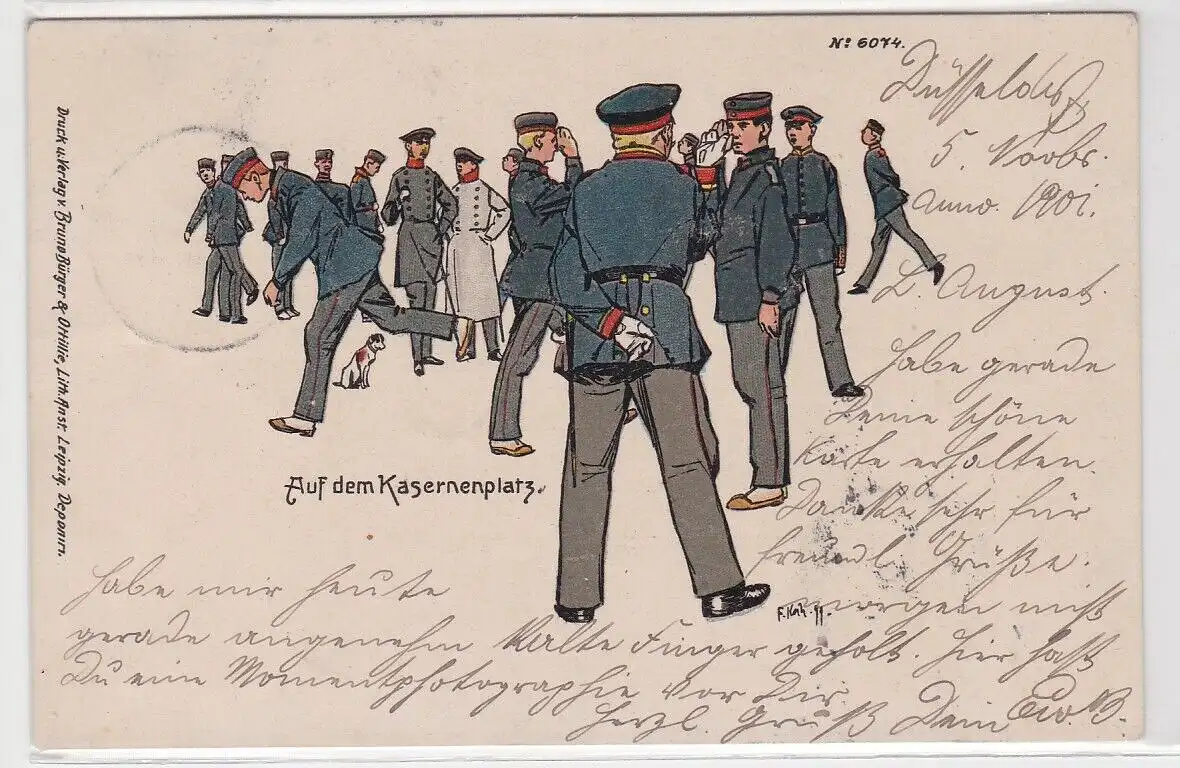 No 6074.
Düsseldorf
5. Novbr.
anno. 1901.
L. August.
Habe gerade
Deine schöne
Karte erhalten.
Danke sehr für
freundl. Grüße.
morgen
Habe mir heute
gerade angenehm Kalte Finger geholt. Hier hast
Du eine Momentphotographie vor Dir
Herzl. Gruß Dein
Auf dem Kasernenplatz.
Druck u. Verlag v. Bruno Bürger & Ottillie, Lith. Anst. Leipzig. Deponirt.